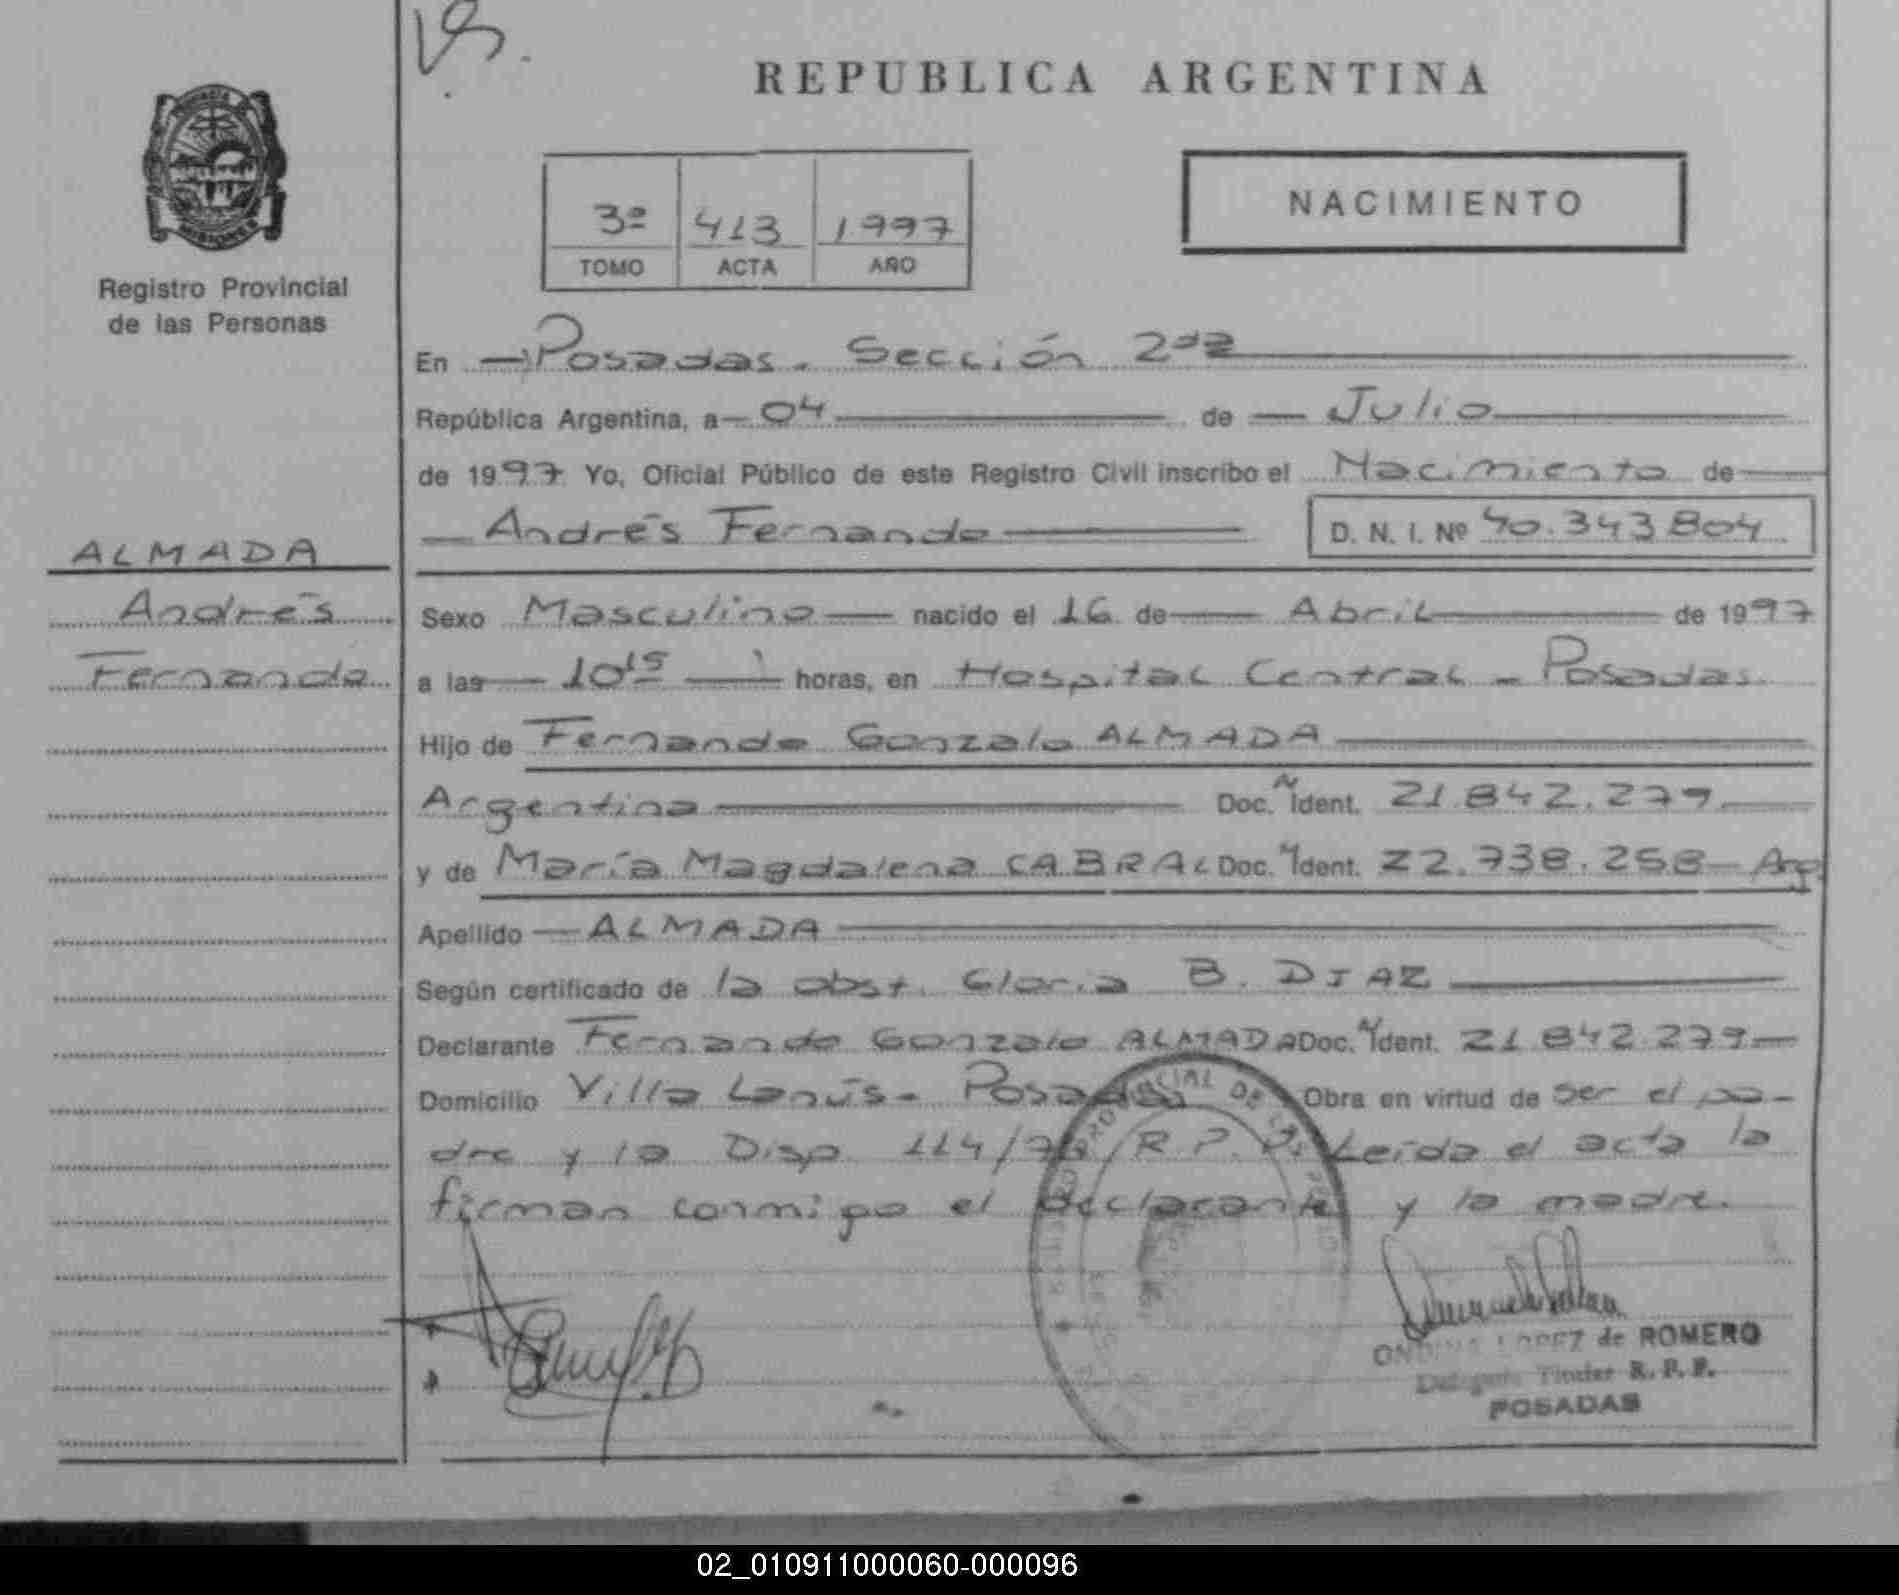 REPUBLICA ARGENTINA
3º 413 1997
TOMO ACTA AÑO
NACIMIENTO
PROVINCIA DE
MISIONES
Registro Provincial
de las Personas
ALMADA
Andrés
Fernando
En Posadas - Sección 2da
República Argentina, a 04 de Julio
de 1997 Yo, Oficial Público de este Registro Civil inscribo el Nacimiento de
Andrés Fernando D. N. I. Nº 40.343804
Sexo Masculino nacido el 16 de Abril de 1997
a las 10 15 horas, en Hospital Central - Posadas
Hijo de Fernando Gonzalo ALMADA
Argentina Doc. N Ident. 21.842.279
y de María Magdalena CABRAL Doc. N Ident. 22.738.258 - Arg.
Apellido ALMADA
Según certificado de la obst. Gloria B. DIAZ
Declarante Fernando Gonzalo ALMADA Doc. N Ident. 21.842.279
Domicilio Villa Lanús - Posadas Obra en virtud de ser el pa-
dre y la Disp. 114/76 R.P.P. Leída el acta la
firman conmigo el declarante y la madre.
ONDINA LOPEZ de ROMERO
Delegada Titular R. P. P.
POSADAS
02_010911000060-000096